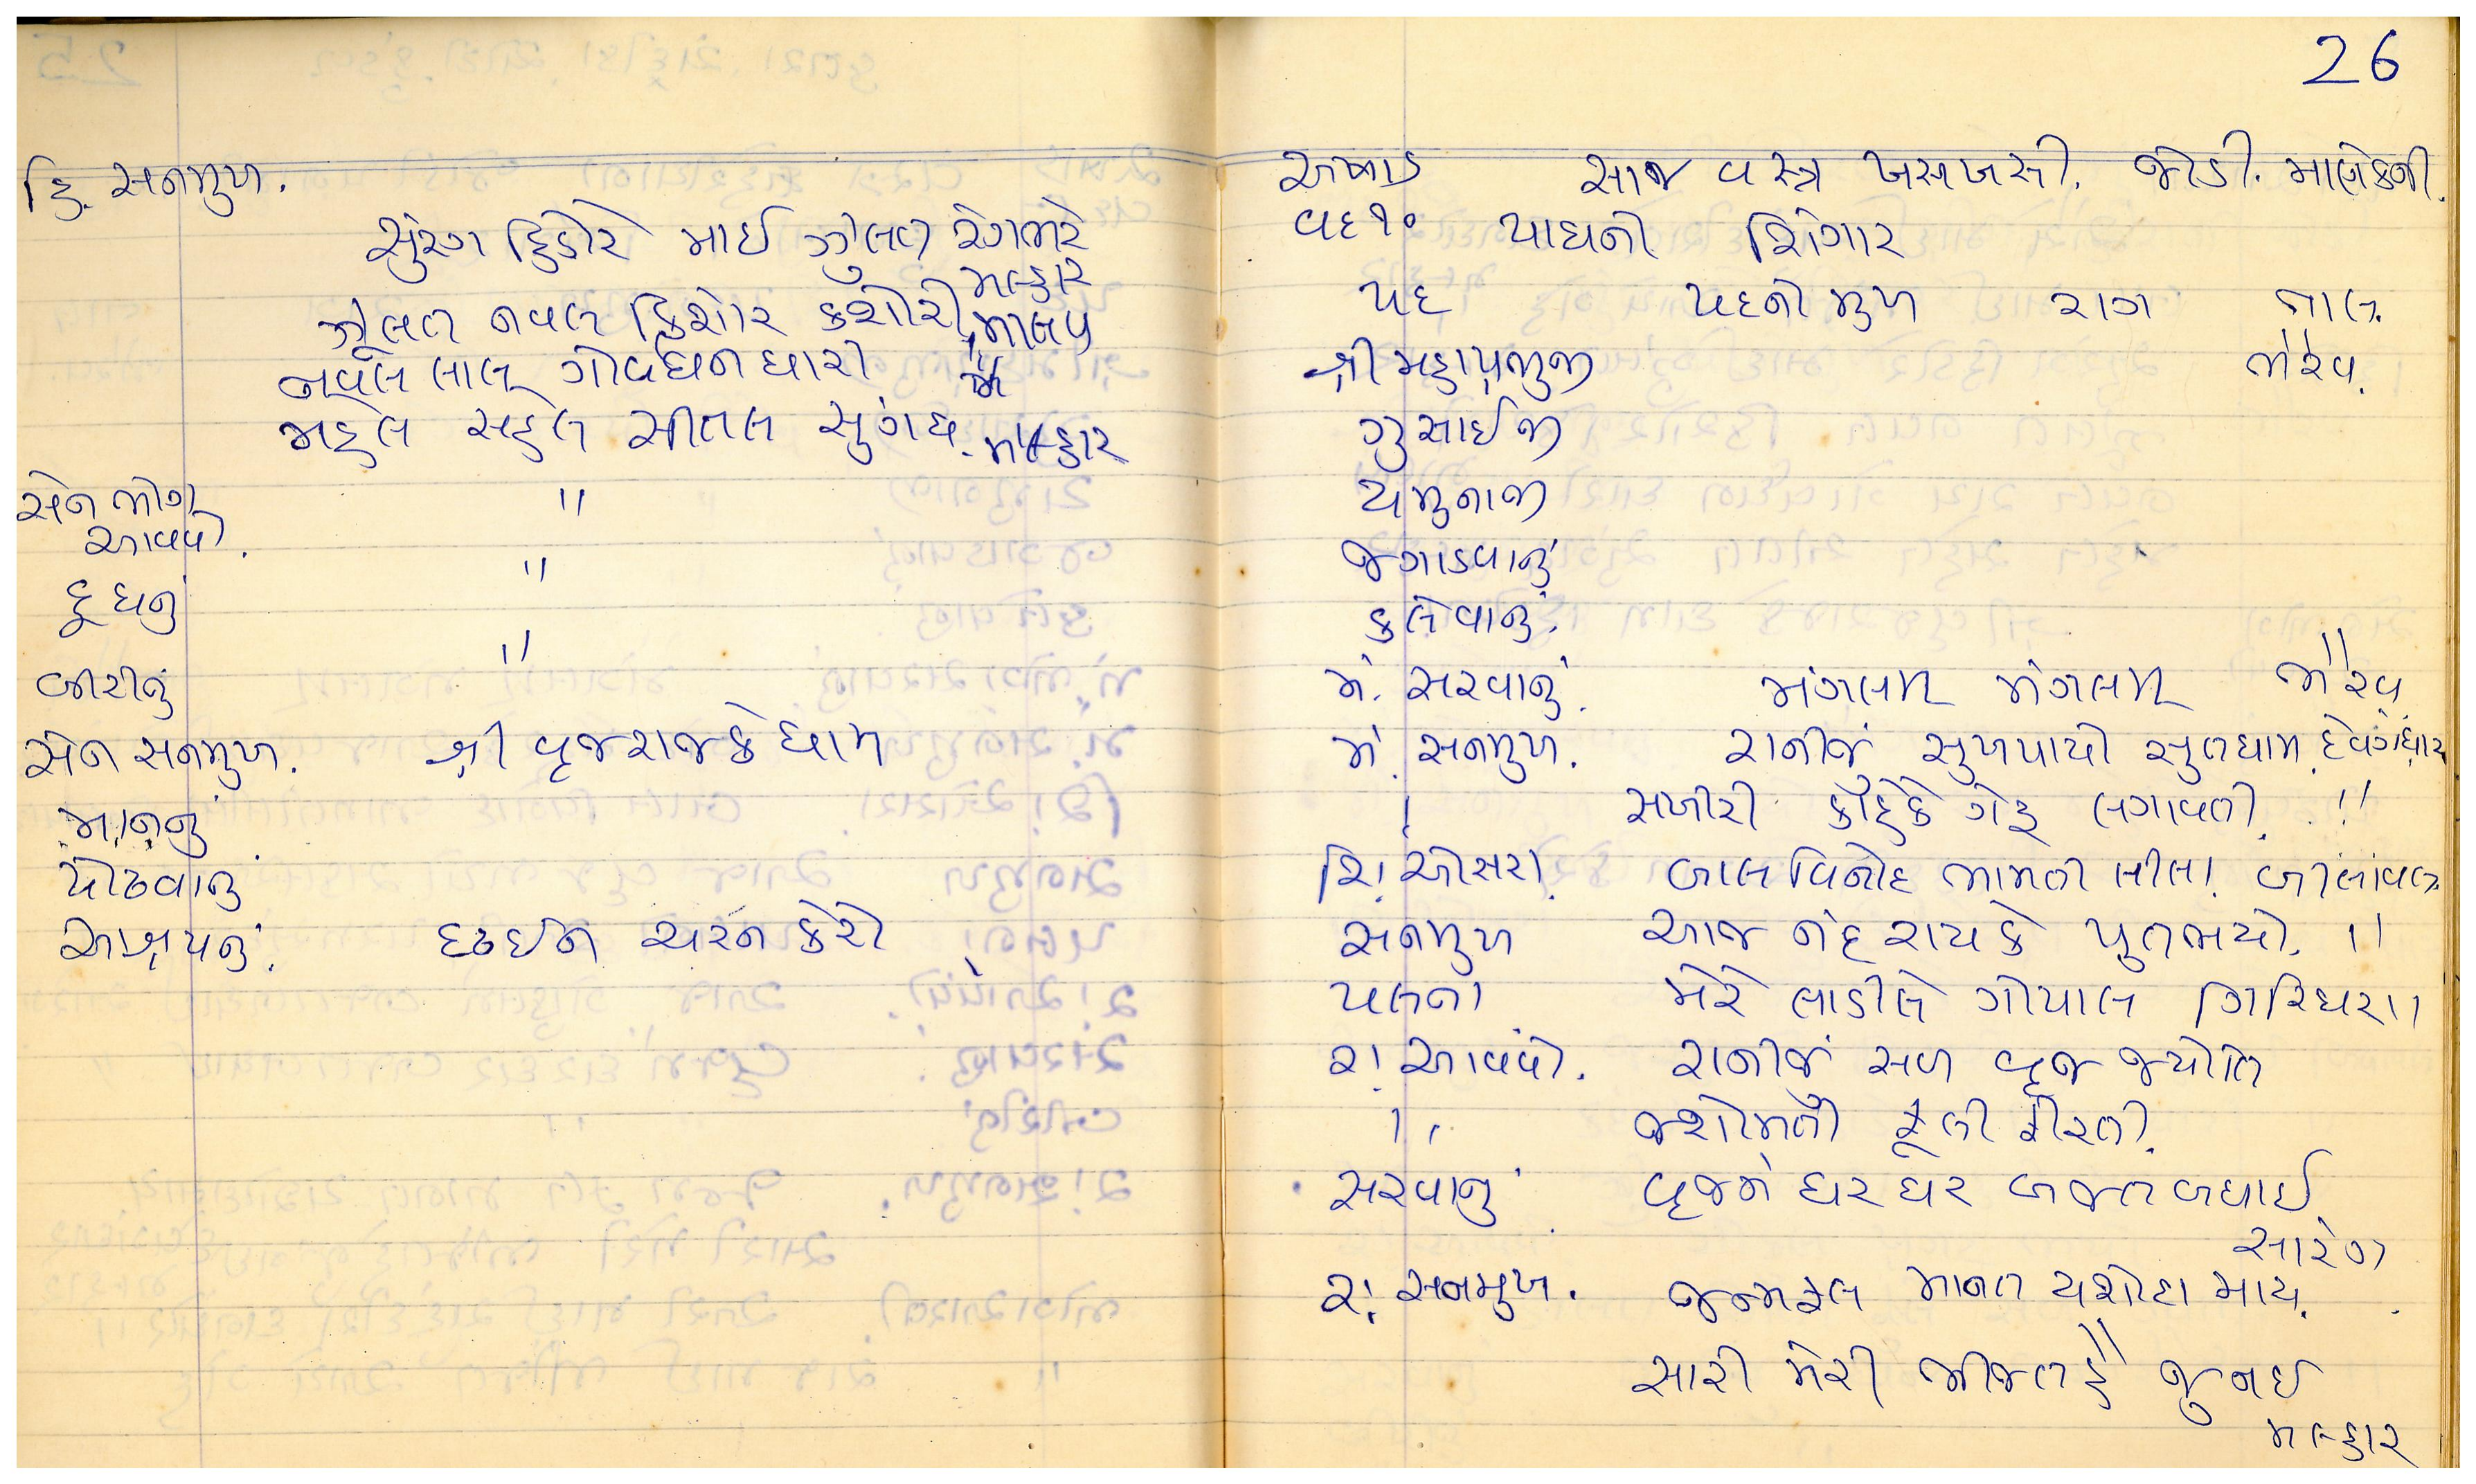 હિં. સનમુખ.
સુંરંગ હિંડોરે માઈ ઝુલત રંગભરે
મલ્હાર
ઝૂલત નવલ કિશોર કશોરી માલવ
નવલ લાલ ગોવર્ધન ધારી "
મહેલ સહેલ સીતલ સુગંધ. મલ્હાર
સેન ભોગ "
આવવો.
દૂધનું "
બીરીનું "
સેન સનમુખ. શ્રી વૃજરાજકે ધામ
માનનું
પોઢવાનું
આશ્રયનું. દ્રઢઈન ચરન કેરો
26
અષાડ સાજ વસ્ત્ર ખસખસી. જોડી. માણેકની.
વદ ૧૦ પાઘનો શિંગાર
પદ પદનો મુખ રાગ તાલ
શ્રી મહાપ્રભુજી ભૈરવ.
ગુસાઈજી
યમુનાજી
જગાડવાનું
કલેવાનું.
મં. સરવાનું. મંગલમ મંગલમ ભૈરવ
મં. સનમુખ. રાનીજું સુખપાયો સુતધામ. દેવગંધાર
" સખીરી કોહુકે ગેહ લગાવતી. "
શિં. ઓસરા. બાલ વિનોદ ભામતી લીલા. બીલાવલ
સનમુખ આજ નંદ રાયકે પુતભયો. "
પલના મેરે લાડીલે ગોપાલ ગિરિધરા "
રા. આવવો. રાનીજું સબ વૃજ જ્યોતિ
" જશોમતી ફૂલી ફીરતી.
સરવાનું વૃજમેં ઘર ઘર બજત બધાઈ
સારંગ
રા. સનમુખ. જન્મફલ માનત યશોદા માય.
સારી મેરી ભીજત હૈ જુ નઈ
મલ્હાર